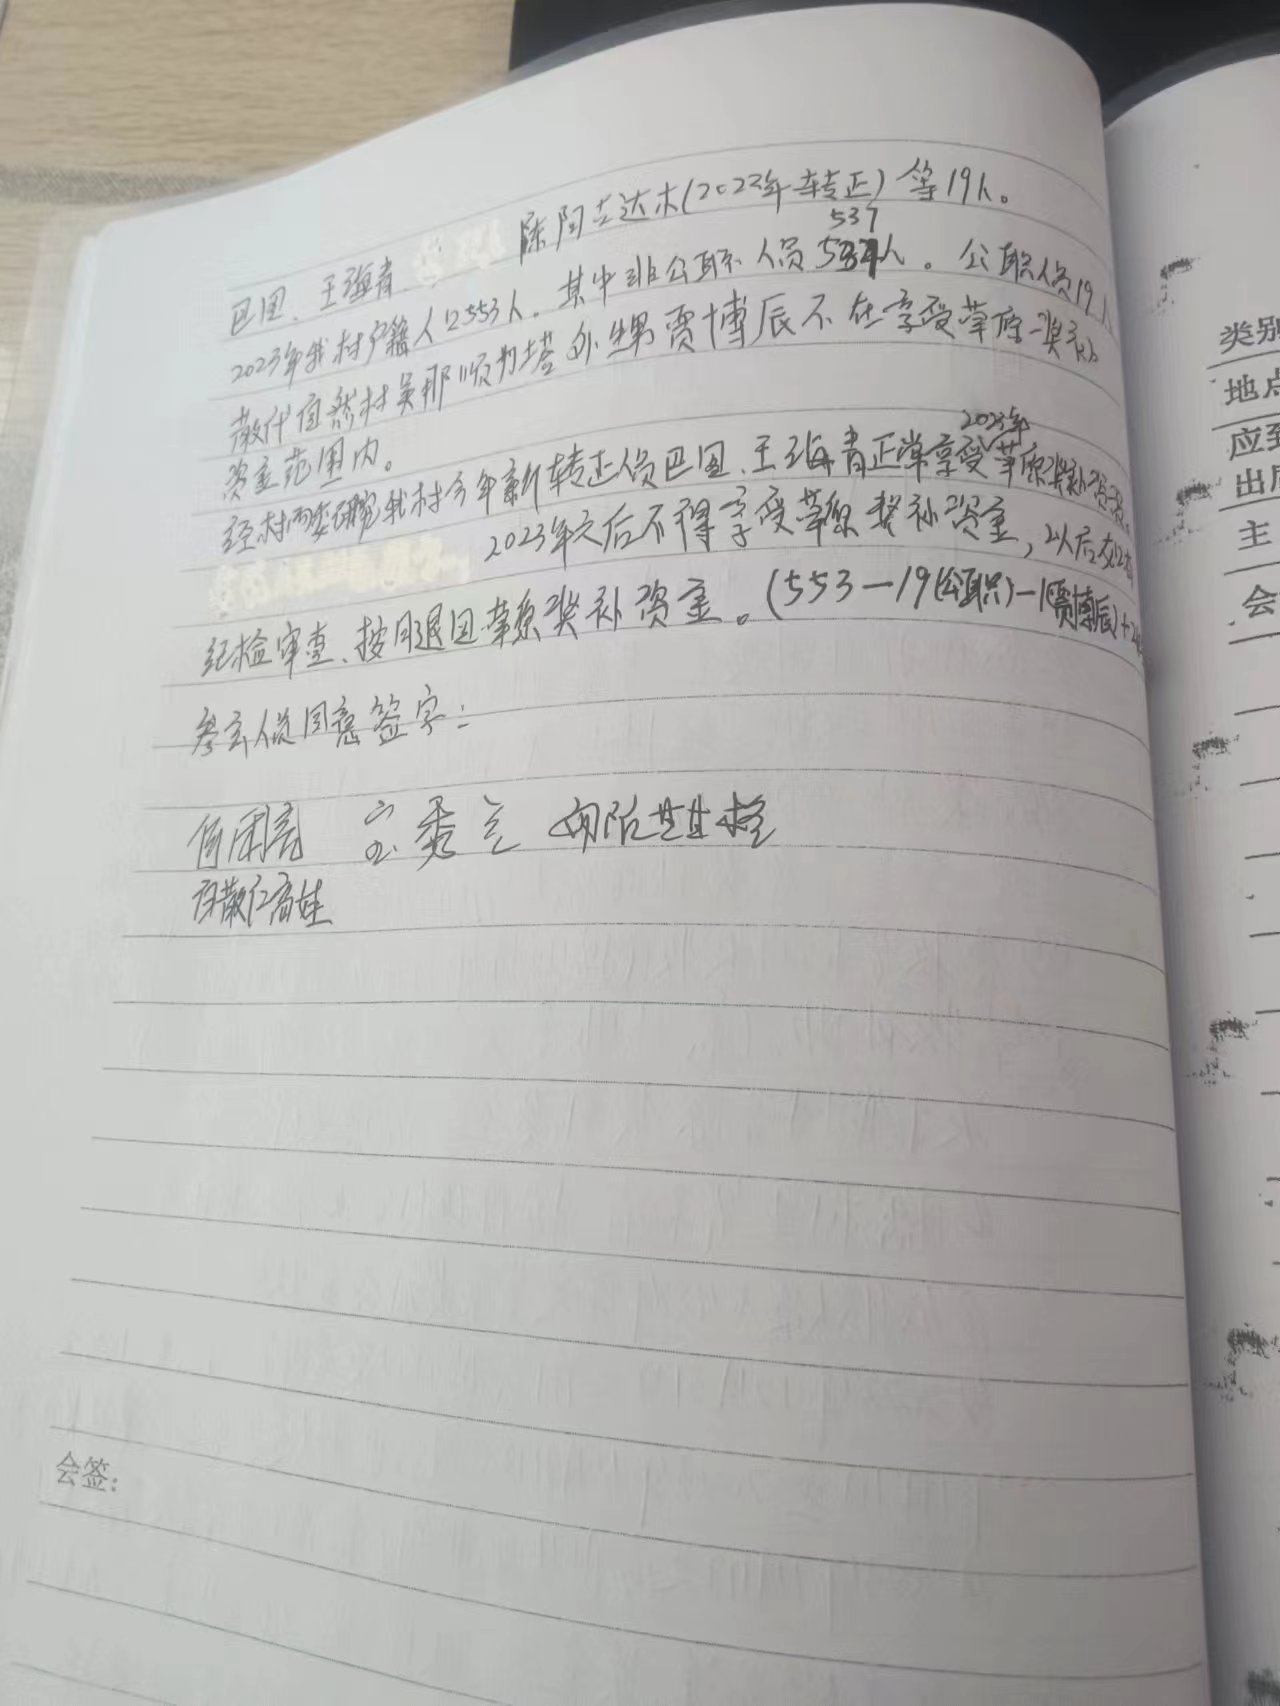 巴图、王海青 陈阿古达木(2022年转正)等19人。
537
2023年我村户籍人口553人。其中非公职人员537人。公职人员19人
散代自然村吴那顺乌塔外甥贾博辰不在享受草原奖补
资金范围内。
2023年
经村两委研究我村今年新转正人员巴图、王海青正常享受草原奖补资金,
2023年之后不得享受草原奖补资金,以后
纪检审查、按月退回草原奖补资金。(553-19(公职)-1(贾博辰)+2
参会人员同意签字:
宝秀兰
会签:
类别
地点
应到
出席
主
会